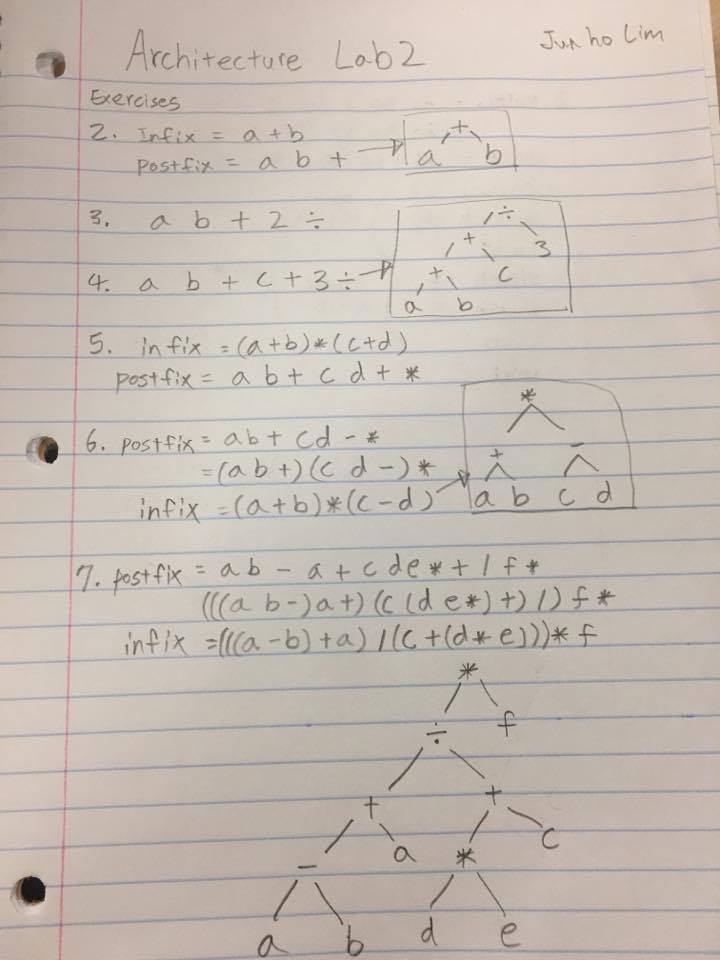 Architecture Lab2
Junho Lim
Exercises
2. Infix = a+b
postfix = a b +
+
a b
3. a b + 2 ÷
÷
+ 3
4. a b + c + 3 ÷
+ c
a b
5. infix = (a+b)*(c+d)
postfix = a b + c d + *
6. postfix = ab + cd - *
= (a b +)(c d -) *
infix = (a+b)*(c-d)
*
+ -
a b c d
7. postfix = a b - a + c d e * + / f *
(((a b-)a+)(c(d e*)+)/)f*
infix =(((a-b)+a)/(c+(d*e)))*f
*
÷ f
+ +
- a * c
a b d e